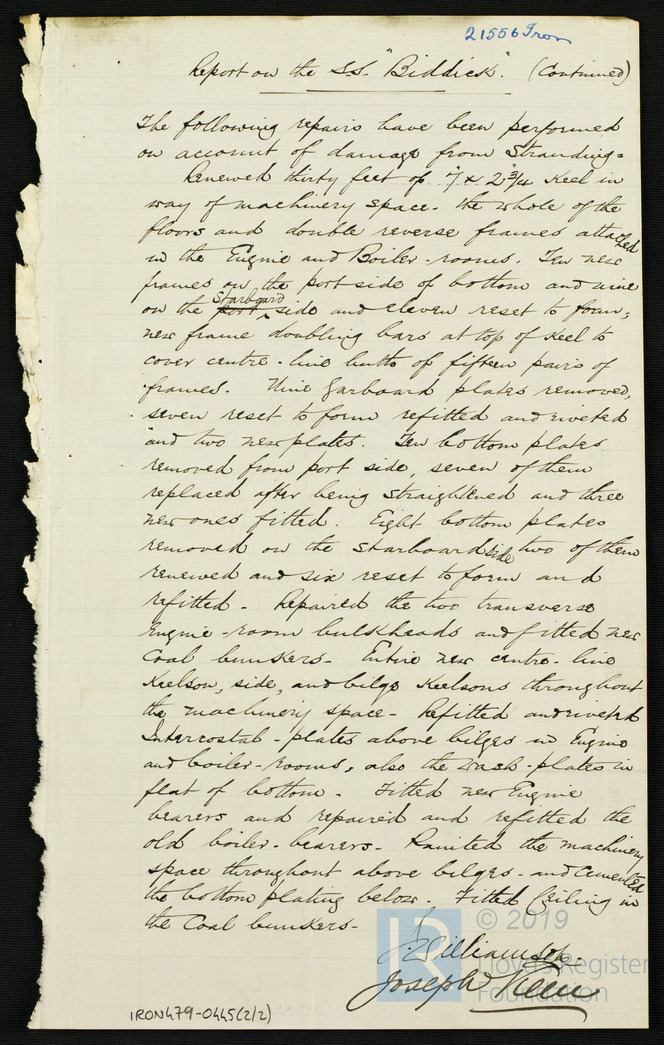 21556 Iron
Report on the S.S. "Biddick". (Continued)
The following repairs have been performed
on account of damage from Stranding =
Renewed thirty feet of 7 x 2 3/4 Keel in
way of machinery space - the whole of the
floors and double reverse frames attached
in the Engine and Boiler-rooms. Ten new
frames on the port side of bottom and nine
on the port Starboard side and eleven reset to form;
new frame doubling bars at top of Keel to
cover centre-line butts of fifteen pairs of
frames. Nine Garboard plates removed,
seven reset to form refitted and riveted
and two new plates. Ten bottom plates
removed from port side, seven of them
replaced after being straightened and three
new ones fitted. Eight bottom plates
removed on the starboard side two of them
renewed and six reset to form and
refitted - Repaired the two transverse
Engine-room bulkheads and fitted new
Coal bunkers - Entire new centre-line
Keelson, side, and bilge Keelsons throughout
the machinery space - Refitted and riveted
Intercostal-plates above bilges in Engine
and boiler-rooms, also the Wash-plates in
flat of bottom - Fitted new Engine
bearers and repaired and refitted the
old boiler-bearers - Painted the machinery
space throughout above bilges - and Cemented
the bottom plating below. Fitted Ceiling in
the Coal bunkers -
J. Williamson.
Joseph Keen
© 2019
Lloyd's Register
Foundation
LR
IRON479-0445(2/2)